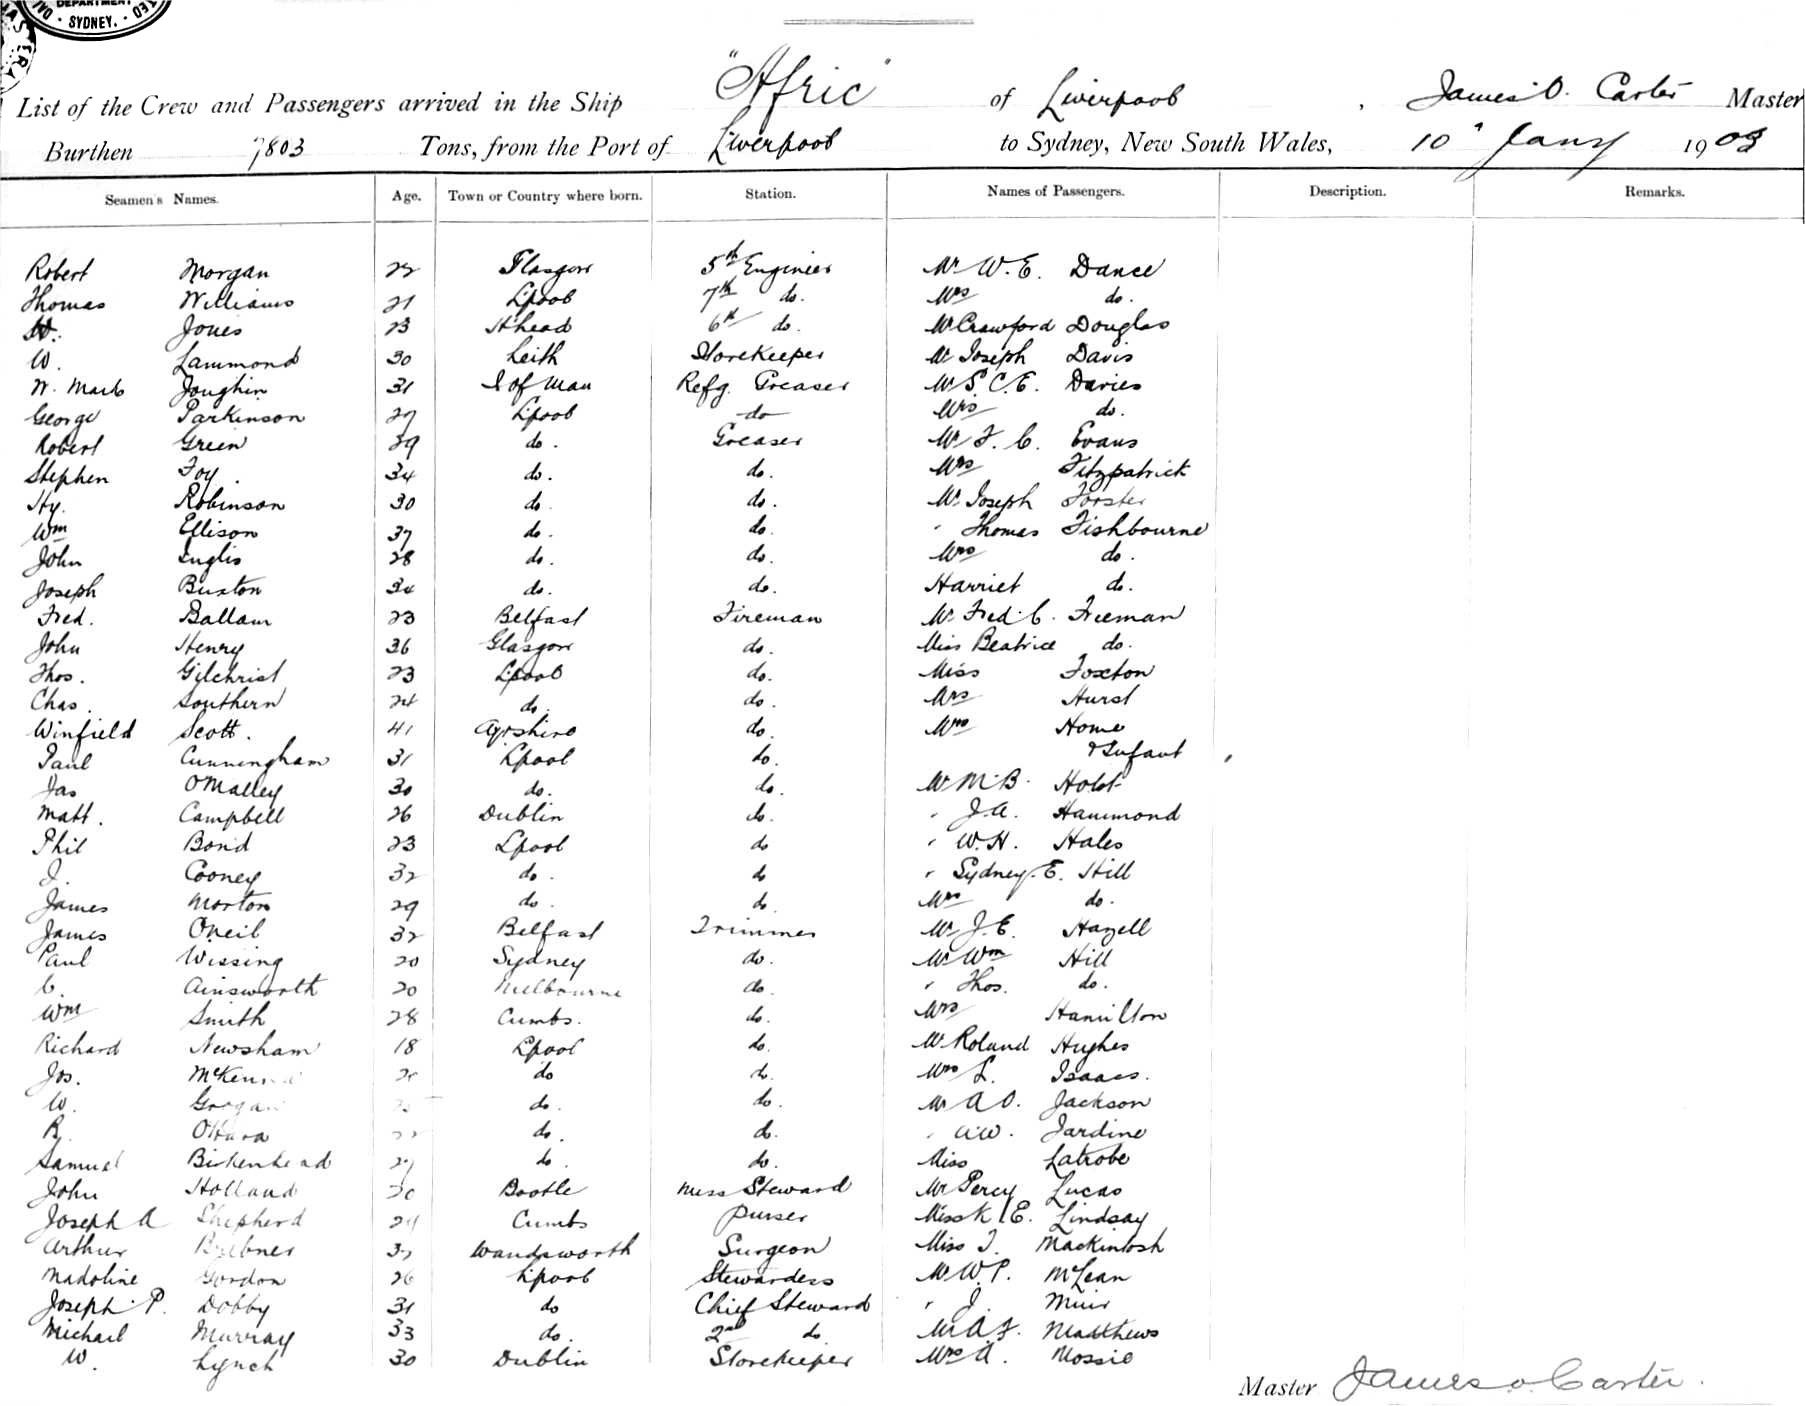 DEPARTMENT
· SYDNEY. ·
List of the Crew and Passengers arrived in the Ship "Afric" of Liverpool, James O. Carter Master
Burthen 7803 Tons, from the Port of Liverpool to Sydney, New South Wales, 10" Jany 1903
Seamen's Names. Age. Town or Country where born. Station. Names of Passengers. Description. Remarks.
Robert Morgan 22 Glasgow 5th Engineer Mr W.E. Dance
Thomas Williams 21 Lpool 7th do. Mrs do.
Jones 23 Hhead 6th do. Mr Crawford Douglas
W. Lammond 30 Leith Storekeeper Mr Joseph Davis
W. Mark Joughin 31 I of Man Refg. Greaser Mr S.C.E. Davies
George Parkinson 27 Lpool do Mrs do.
Robert Green 29 do. Greaser Mr F. C. Evans
Stephen Foy. 34 do. do. Mrs Fitzpatrick
Hy. Robinson 30 do. do. Mr Joseph Forster
Wm Ellison 37 do. do. " Thomas Fishbourne
John Inglis 28 do. do. Mrs do.
Joseph Buxton 34 do. do. Harriet do.
Fred. Ballam 23 Belfast Fireman Mr Fred C. Freeman
John Henry 36 Glasgow do. Miss Beatrice do.
Thos. Gilchrist 23 Lpool do. Miss Foxton
Chas. Southern 24 do. do. Mrs Hurst
Winfield Scott. 41 Ayrshire do. Mrs Home
Paul Cunningham 31 Lpool do. & Infant
Jas O'Malley 30 do. do. Mr M.B. Holt
Matt. Campbell 26 Dublin do. " J.A. Hammond
Phil Bond 23 Lpool do " W.H. Hales
J. Cooney 32 do. do " Sydney. E. Hill
James Morton 29 do. do. Mrs do.
James O'Neil 32 Belfast Trimmer Mr J.E. Hazell
Paul Wissing 20 Sydney do. Mr Wm Hill
C. Ainsworth 20 Melbourne do. " Thos. do.
Wm Smith 28 Cumbs. do. Mrs Hamilton
Richard Newsham 18 Lpool do. Mr Roland Hughes
Jos. McKenna do do. Mrs L. Isaacs.
W. Grogan do. do. Mr A O. Jackson
R. O'Hara 22 do. do. " A.W. Jardine
Samuel Birkenhead 27 do. do. Miss Latrobe
John Holland 20 Bootle Mess Steward Mr Percy Lucas
Joseph A Shepherd 24 Cumbs Purser Miss K. E. Lindsay
Arthur 32 Wandsworth Surgeon Miss J. Mackintosh
Madoline Gordon 26 Lpool Stewardess Mr W.P. McLean
Joseph P. Dobby 31 do Chief Steward " J. Muir
Michael Murray 33 do. 2nd do Mr A F. Matthews
W. Lynch 30 Dublin Storekeeper Mrs A. Mossie
Master James O. Carter.